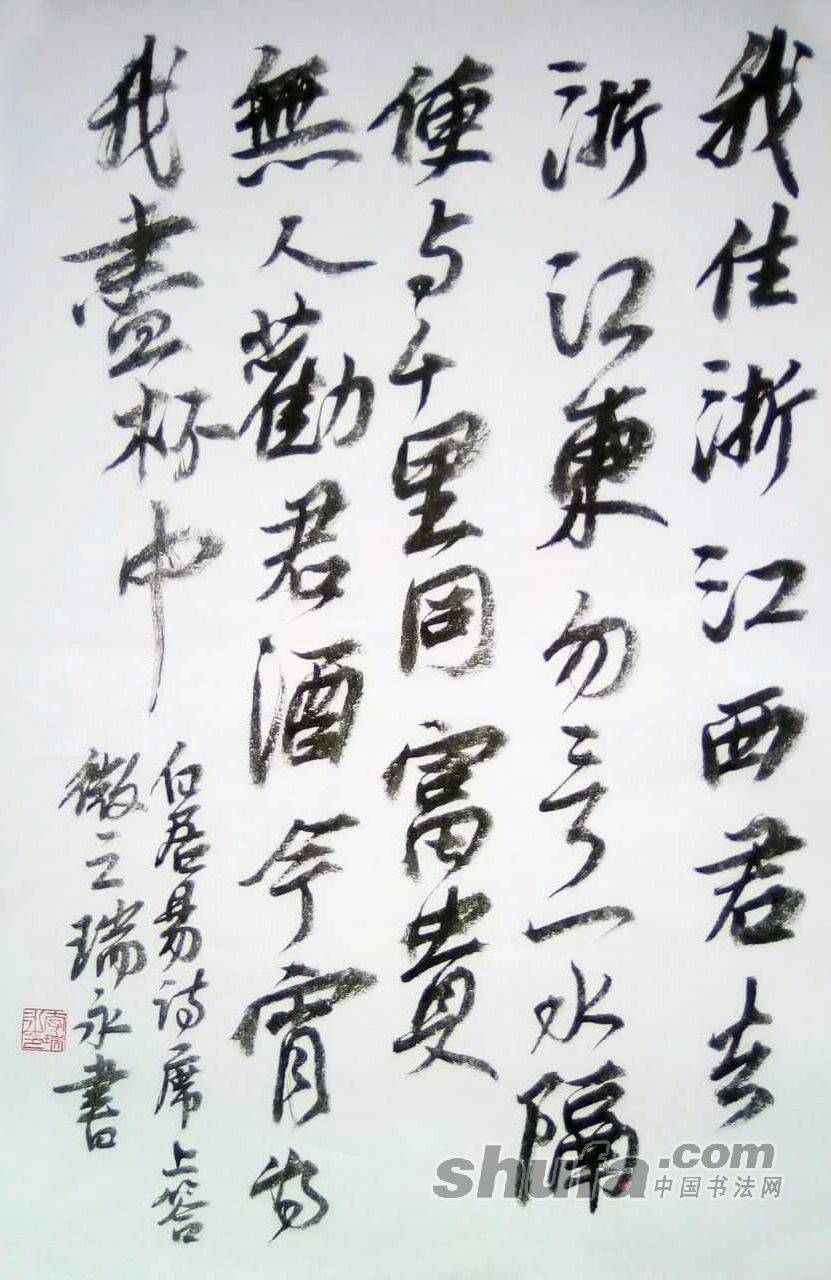 我住浙江西君去
浙江東勿言一水隔
便与千里同富貴
無人勸君酒今宵为
我盡杯中
白居易诗席上答
微之瑞永書
shufa.com
中国书法网